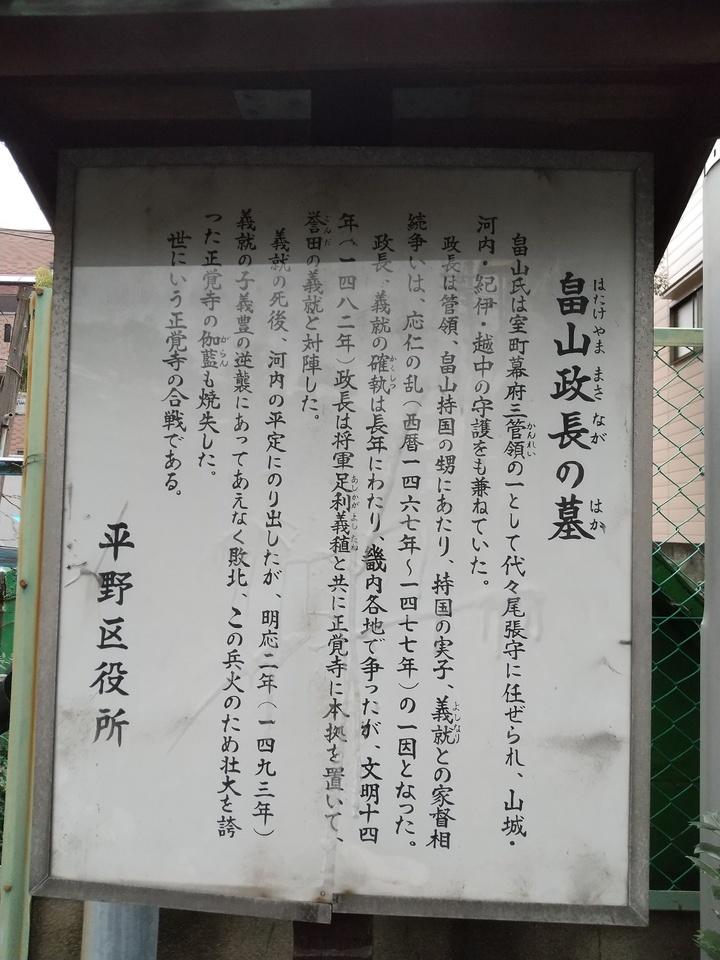 畠山政長の墓
はたけ やま まさ なが はか
畠山氏は室町幕府三管領の一として代々尾張守に任ぜられ、山城・
かんれい
河内・紀伊・越中の守護をも兼ねていた。
政長は管領、畠山持国の甥にあたり、持国の実子、義就との家督相
よしなり
続争いは、応仁の乱(西暦一四六七年〜一四七七年)の一因となった。
政長、義就の確執は長年にわたり、畿内各地で争ったが、文明十四
かくしつ
年(一四八二年)政長は将軍足利義稙と共に正覚寺に本拠を置いて、
あしかが よしたね
誉田の義就と対陣した。
こんだ
義就の死後、河内の平定にのり出したが、明応二年(一四九三年)
義就の子義豊の逆襲にあってあえなく敗北、この兵火のため壮大を誇
った正覚寺の伽藍も焼失した。
がらん
世にいう正覚寺の合戦である。
平野区役所